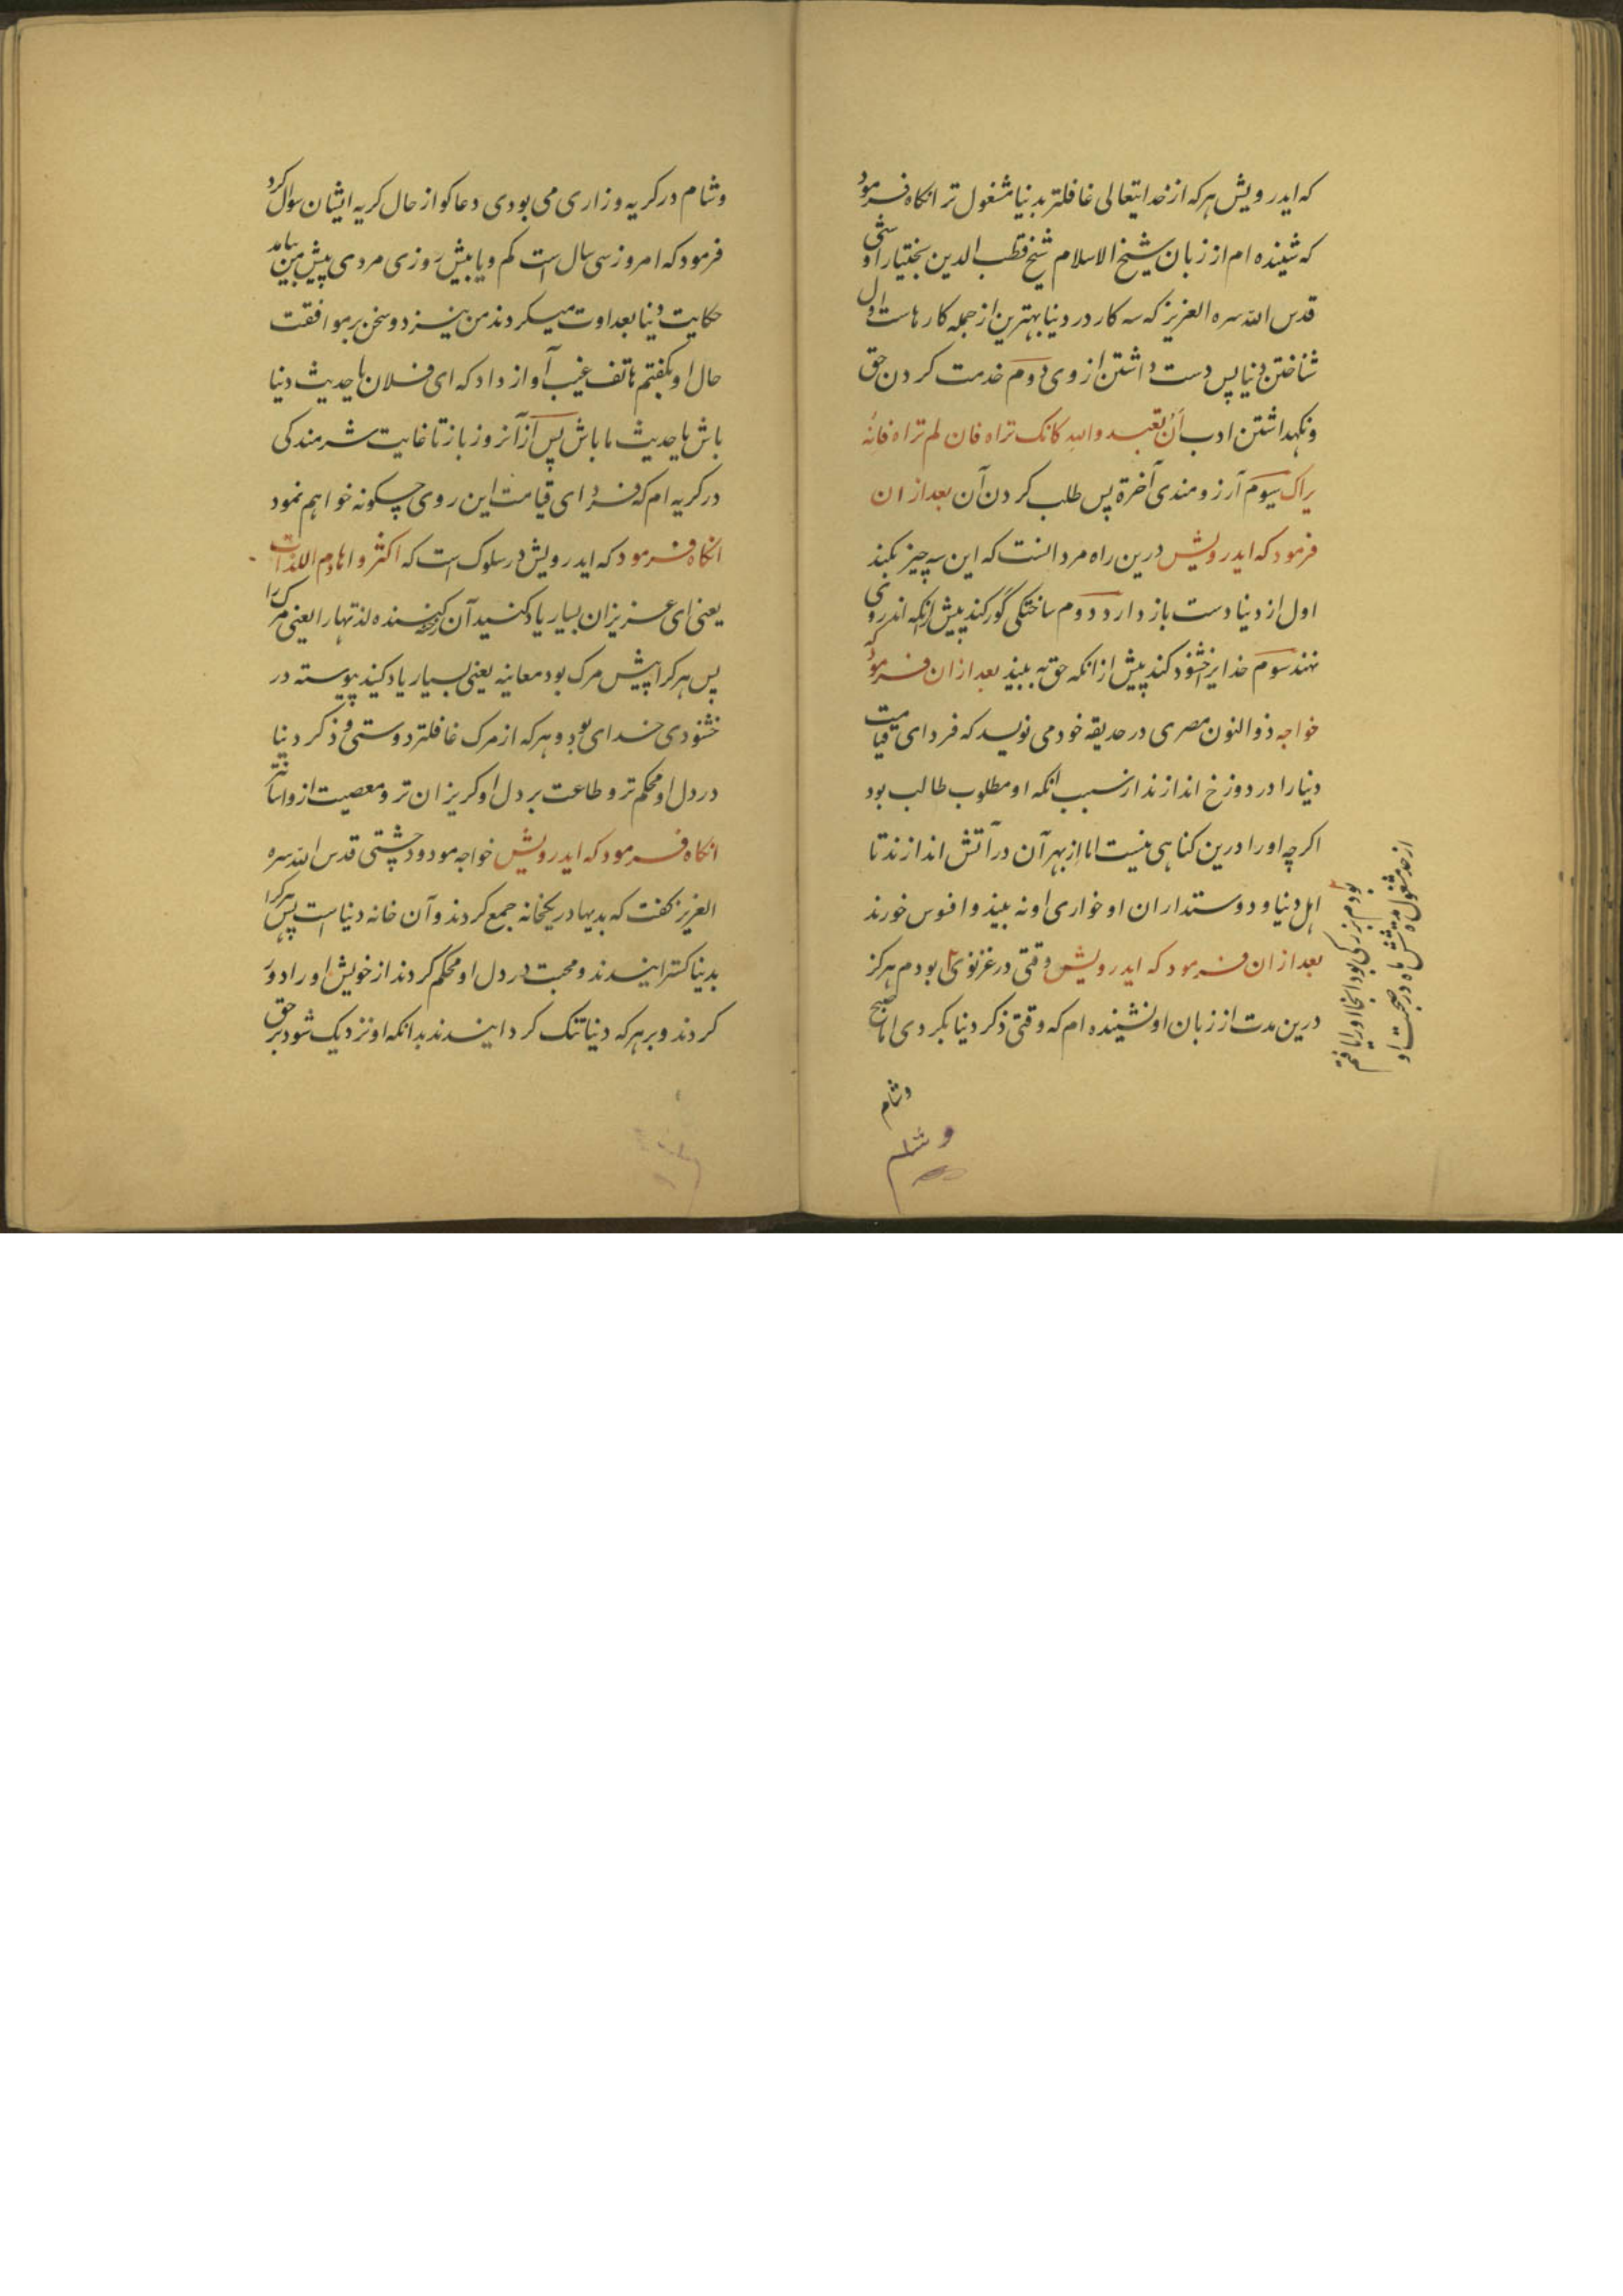 که ایدرویش هرکه از خدایتعالی غافلتر بدنیا مشغول تر انکاه فرمود
که شنیده ام از زبان شیخ الاسلام شیخ قطب الدین بختیار اوشی
قدس الله سره العزیز که سه کار در دنیا بهترین از جمله کارهاست اول
شناختن دنیا پس دست داشتن از وی دوم خدمت کردن حق
ونکهداشتن ادب اَن تعبد والله کانک تراه فان لم تراه فانه
یراک سیوم آرزومندی آخرة پس طلب کردن آن بعد ازان
فرمود که ایدرویش درین راه مرد انست که این سه چیز بکند
اول از دنیا دست باز دارد دوم ساختکی گور کند پیش ازانکه اندرونی
نهند سوم خدایرا خشنود کند پیش ازانکه حق به بیند بعد ازان فرمود که
خواجه ذوالنون مصری در حدیقه خود می نویسد که فردای قیامت
دنیا را در دوزخ اندازند از سبب انکه او مطلوب طالب بود
اکرچه او را درین کناهی نیست اما از بهر آن در آتش اندازند تا
اهل دنیا و دوستداران او خواری او نه بیند وافسوس خورند
بعد ازان فرمود که ایدرویش وقتی در غزنوی بودم هرکز
درین مدت از زبان او نشنیده ام که وقتی ذکر دنیا بکردی اما صبح
بودم بزرکی بود انجا او را یافتم
از حد مشغول مدة شش ماه در صحبت او
وشام
وشام
وشام در کریه وزاری می بودی دعاکو از حال کریه ایشان سوال کرد
فرمود که امروز سی سال است کم ویا بیش روزی مردی پیش من بیامد
حکایت دنیا بعداوت میکردند من نیز دو سخن بر موافقت
حال او بکفتم هاتف غیب آواز داد که ای فلان یا حدیث دنیا
باش یا حدیث ما باش پس ازآنروز باز تا غایت شرمندکی
در کریه ام که فردای قیامت این روی چکونه خواهم نمود
انکاه فرمود که ایدرویش در سلوک است که اکثروا هادم اللذات
یعنی ای عزیزان بسیار یاد کنید آن لذتها را یعنی مرک را
پس هر کرا پیش مرک بود معاینه یعنی بسیار یاد کنید پیوسته در
خشنودی خدای بود وهرکه از مرک غافلتر دوستی وذکر دنیا
در دل او محکم تر وطاعت بر دل او کریزان تر ومعصیت ازو اسانتر
انکاه فرمود که ایدرویش خواجه مودود چشتی قدس الله سره
العزیز کفت که بدیها در یکخانه جمع کردند وآن خانه دنیا است پس هرکرا
بدینا کسترانیدند ومحبت در دل او محکم کردند از خویش او را دور
کردند وبر هرکه دنیا تنک کردانیدند بدانکه او نزدیک شود بر حق